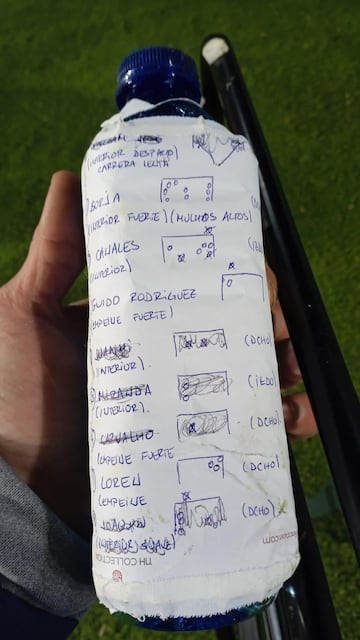 (INTERIOR DESPACIO
CARRERA LENTA)
BORJA
(INTERIOR FUERTE) (MUCHOS ALTOS)
CANALES
(INTERIOR)
GUIDO RODRIGUEZ
(EMPEINE FUERTE)
JUANMI (DCHO)
(INTERIOR).
MIRANDA (IZDO)
(INTERIOR).
CARVALHO (DCHO)
(EMPEINE FUERTE
LOREN (DCHO)
(EMPEINE
JOAQUIN (DCHO)
(INTERIOR SUAVE)
NH COLLECTION